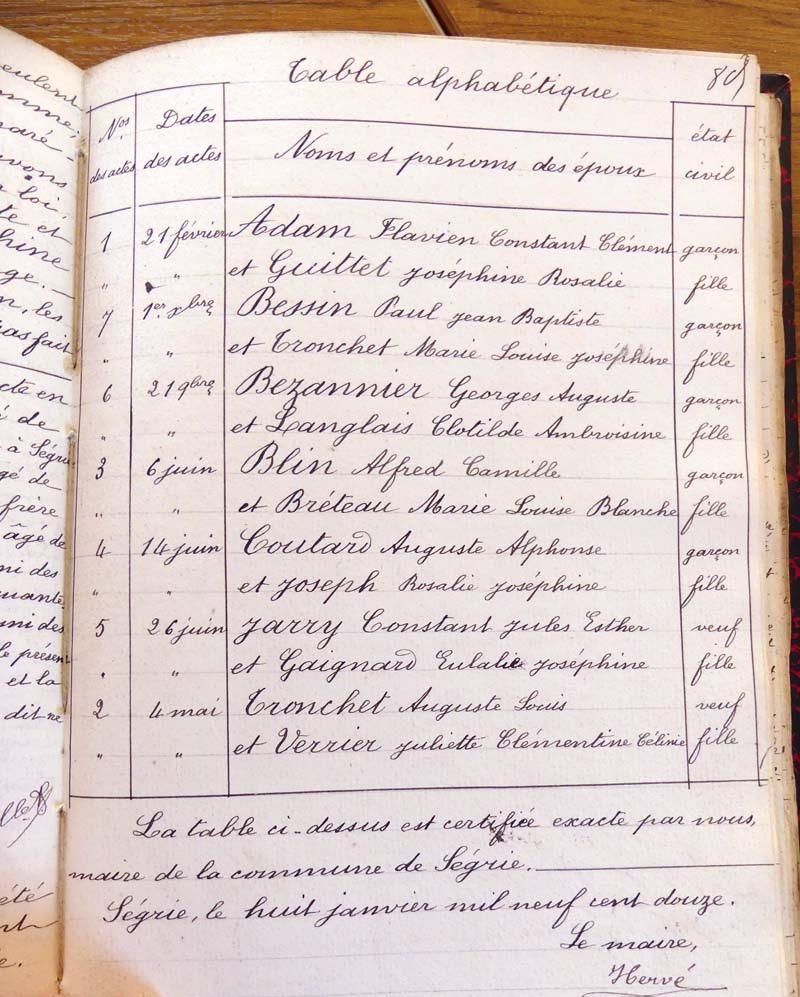 Table alphabétique
Nos des actes
Dates des actes
Noms et prénoms des époux
état civil
1 21 février Adam Flavien Constant Clément garçon
" " et Guittet Joséphine Rosalie fille
7 1er xbre Bessin Paul Jean Baptiste garçon
" " et Tronchet Marie Louise Joséphine fille
6 21 9bre Bezannier Georges Auguste garçon
" " et Langlais Clotilde Ambroisine fille
3 6 juin Blin Alfred Camille garçon
" " et Bréteau Marie Louise Blanche fille
4 14 juin Coutard Auguste Alphonse garçon
" " et Joseph Rosalie Joséphine fille
5 26 juin Jarry Constant Jules Esther veuf
" " et Gaignard Eulalie Joséphine fille
2 4 mai Tronchet Auguste Louis veuf
" " et Verrier Juliette Clémentine Célinie fille
La table ci-dessus est certifiée exacte par nous,
maire de la commune de Ségrie.
Ségrie, le huit janvier mil neuf cent douze.
Le maire,
Hervé